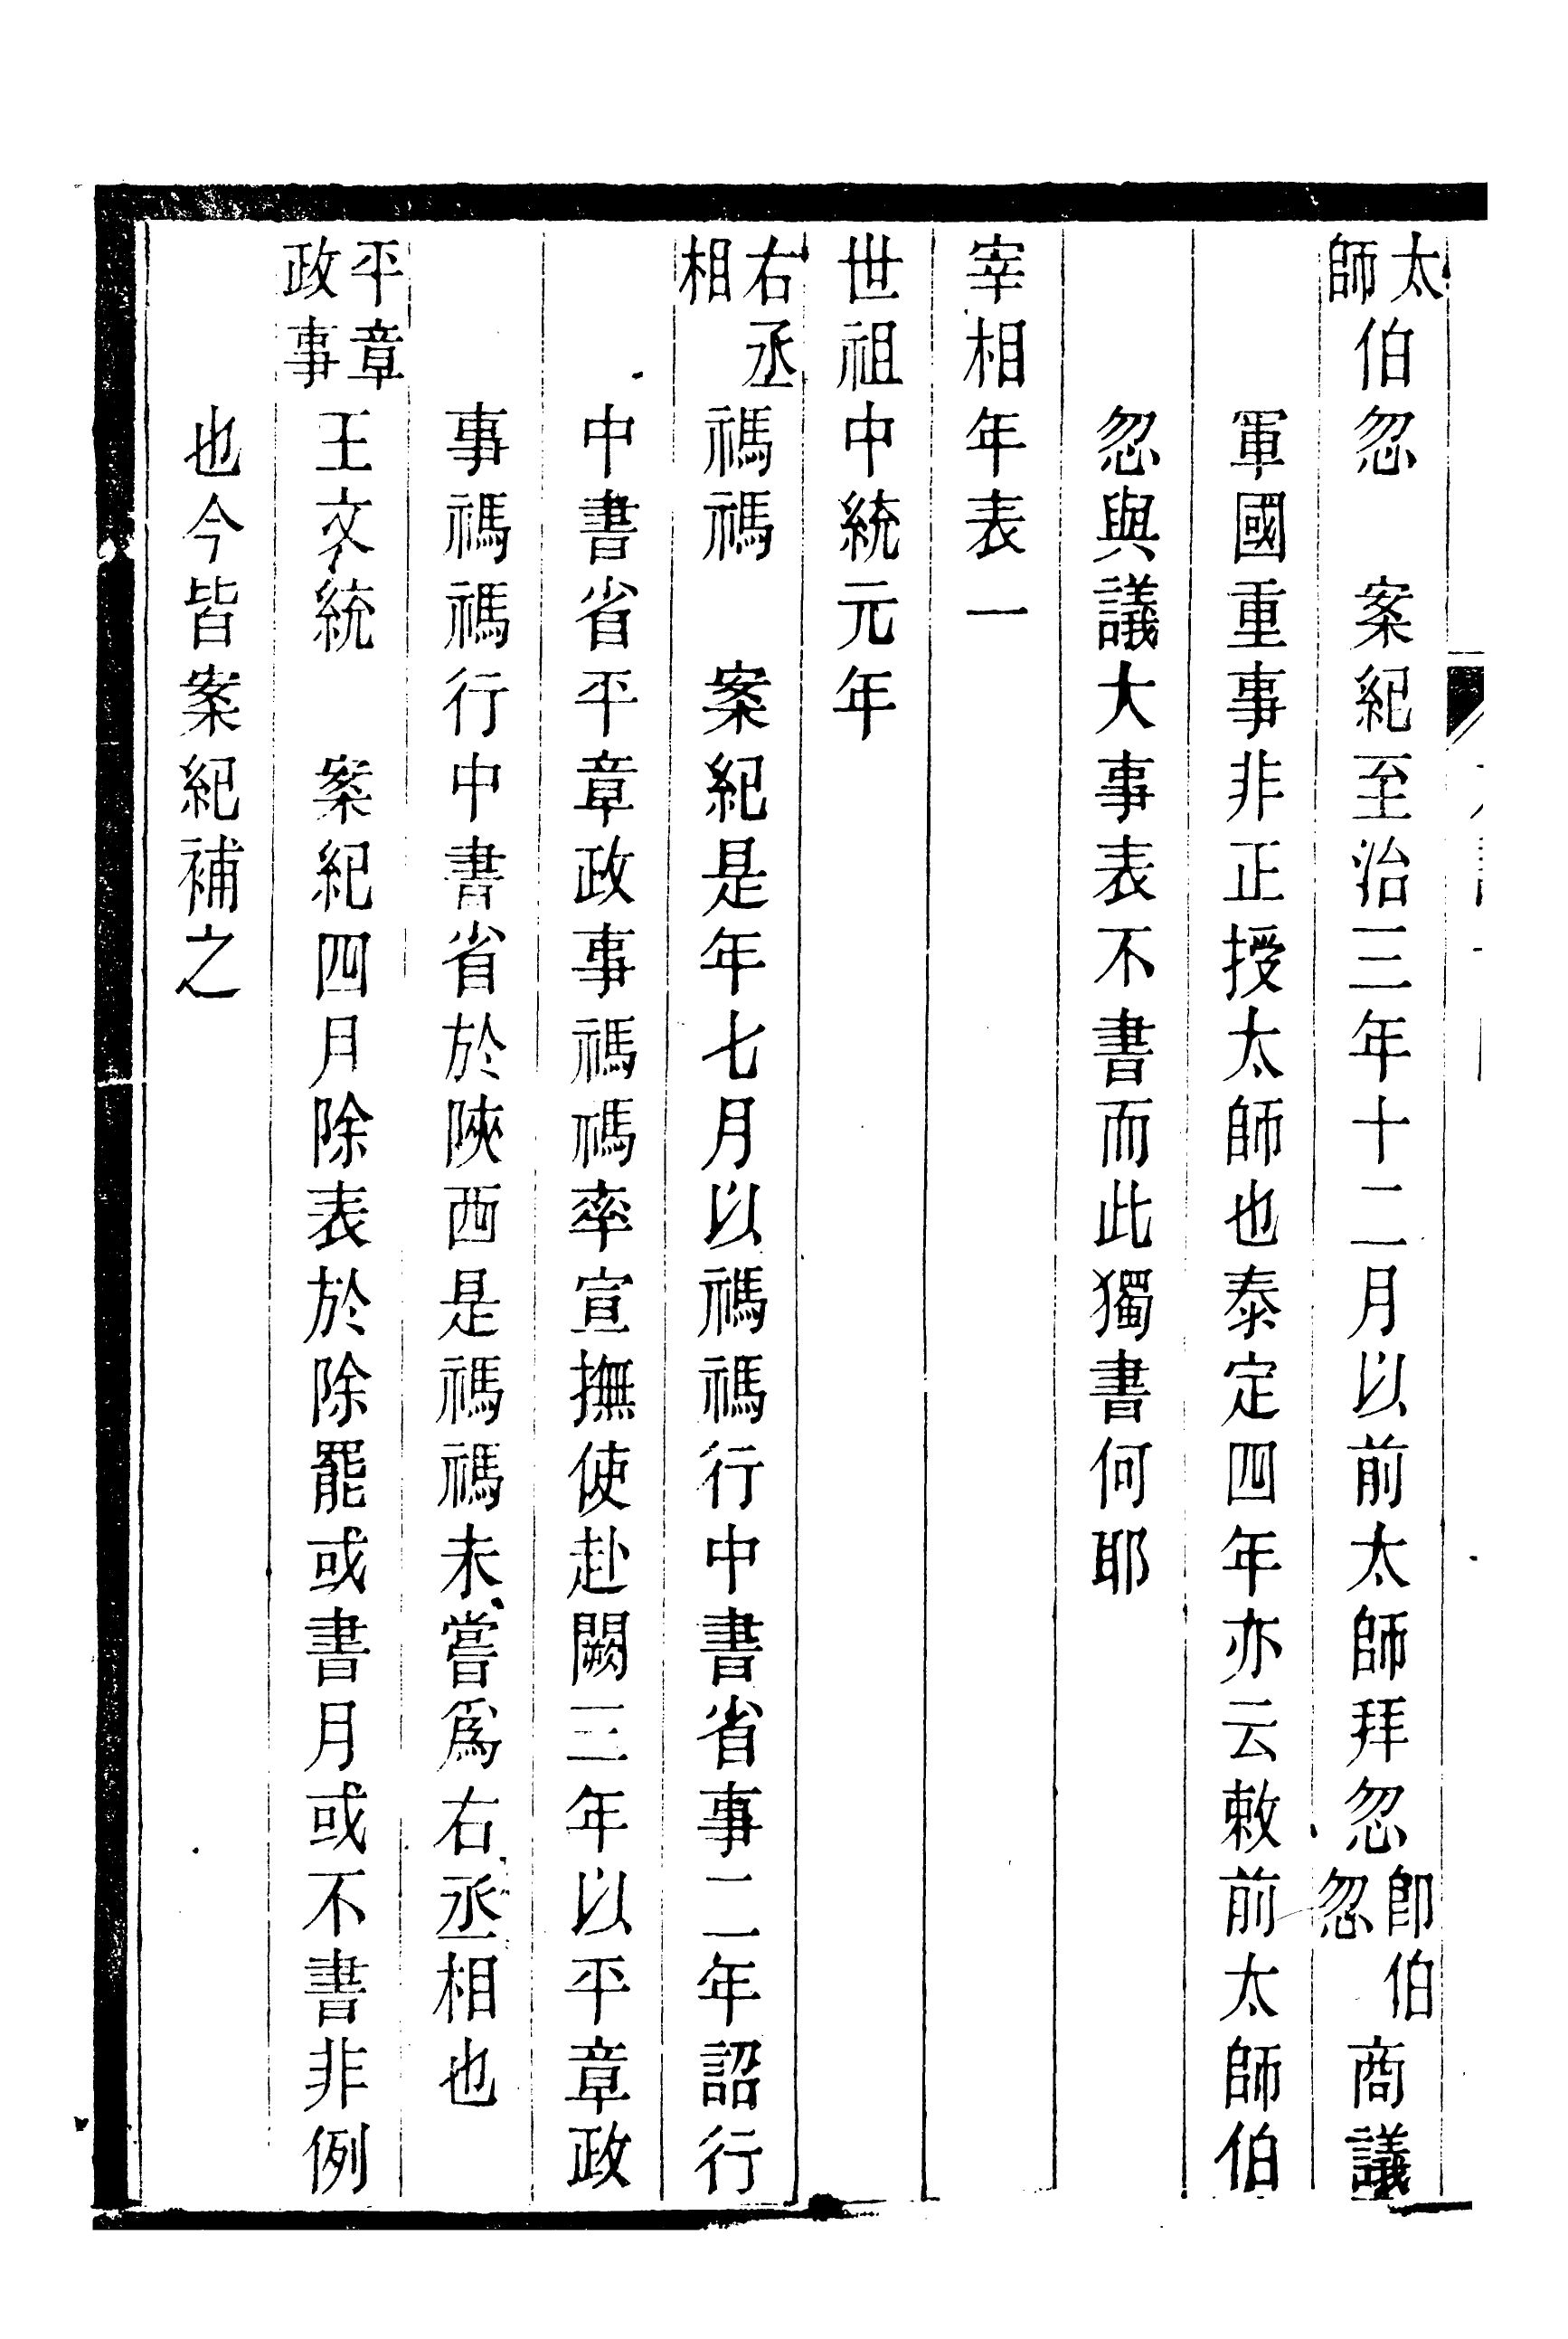 太師伯忽　案紀至治三年十二月以前太師拜忽卽伯忽商議
軍國重事非正授太師也泰定四年亦云敕前太師伯
忽與議大事表不書而此獨書何耶
宰相年表一
世祖中統元年
右丞相禡禡　案紀是年七月以禡禡行中書省事二年詔行
中書省平章政事禡禡率宣撫使赴闕三年以平章政
事禡禡行中書省於陝西是禡禡未嘗爲右丞相也
平章政事王文統　案紀四月除表於除罷或書月或不書非例
也今皆案紀補之